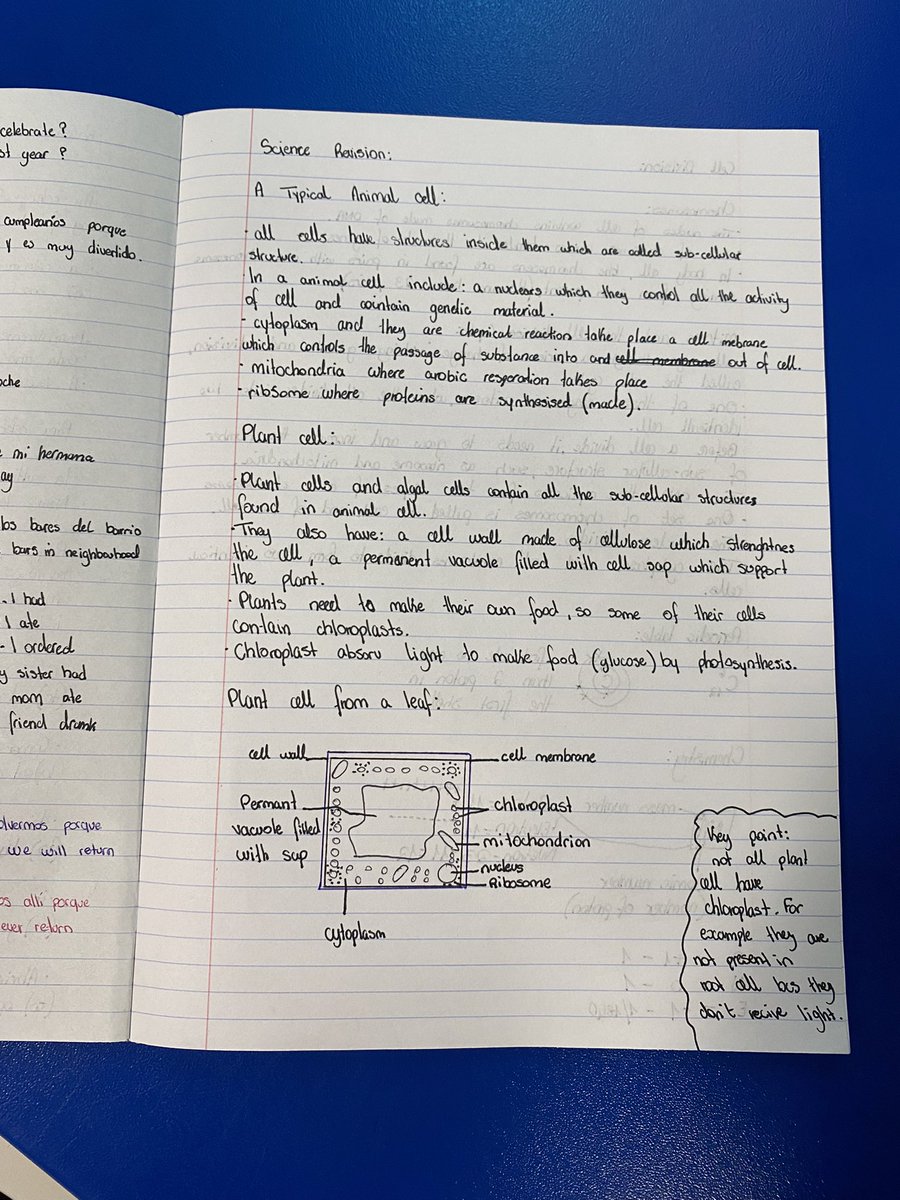 celebrate?
st year ?
cumpleaños porque
y es muy divertido.
oche
e mi hermana
ay
los bares del barrio
bars in neighbourhood
. I had
I ate
- I ordered
y sister had
mom ate
friend drank
olvermos porque
we will return
os allí porque
ever return
Science Revision:
A Typical Animal cell:
- all cells have structures inside them which are called sub-cellular
structure.
In a animal cell include: a nuclears which they control all the activity
of cell and cointain genelic material.
- cytoplasm and they are chemical reaction take place a cell mebrane
which controls the passage of substance into and cell membrane out of cell.
- mitochondria where arobic resporation takes place
- ribsome where proteins are synthesised (made).
Plant cell:
- Plant cells and algal cells contain all the sub-cellular structures
found in animal cell.
- They also have: a cell wall made of cellulose which strenghtnes
the cell, a permanent vacuole filled with cell sap which support
the plant.
- Plants need to make their own food, so some of their cells
contain chloroplasts.
- Chloroplast absorv light to make food (glucose) by photosynthesis.
Plant cell from a leaf:
cell wall
cell membrane
Permant
vacuole filled
with sup
chloroplast
mitochondrion
nucleus
Ribosome
cytoplasm
Key point:
not all plant
cell have
chloroplast. For
example they are
not present in
root cell bcs they
don't recive light.